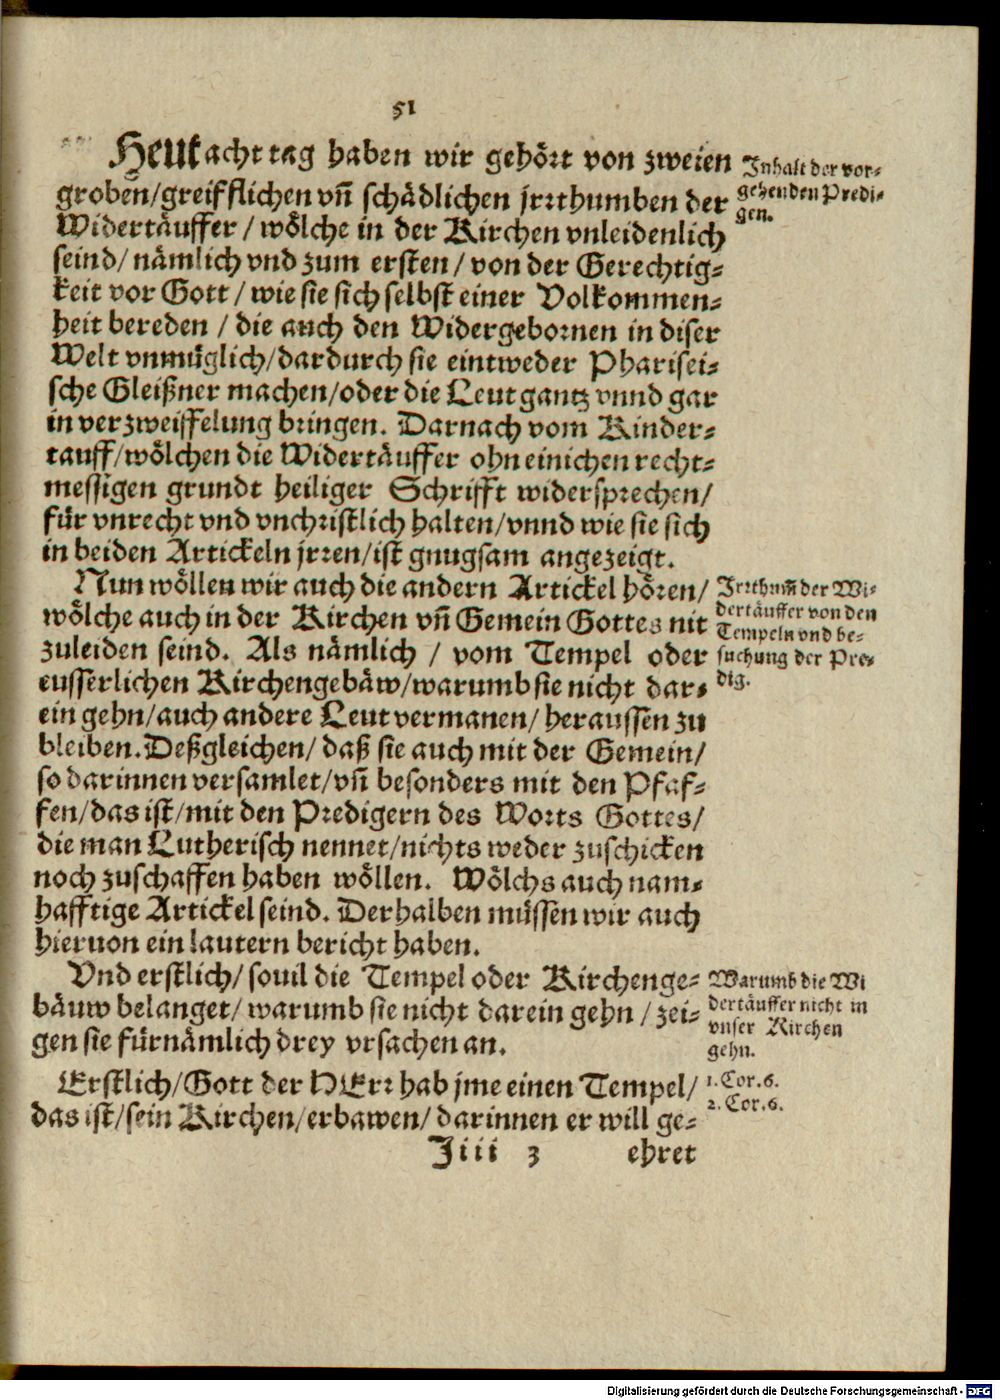 51
Heut acht tag haben wir gehört von zweien
groben/greifflichen vñ schädlichen jrrthumben der
Widertäuffer / wölche in der Kirchen vnleidenlich
seind/ nämlich vnd zum ersten / von der Gerechtig-
keit vor Gott / wie sie sich selbst einer Volkommen-
heit bereden / die auch den Widergebornen in diser
Welt vnmüglich/dardurch sie eintweder Pharisei-
sche Gleißner machen/oder die Leut gantz vnnd gar
in verzweiffelung bringen. Darnach vom Kinder-
tauff/wölchen die Widertäuffer ohn einichen recht-
messigen grundt heiliger Schrifft widersprechen/
für vnrecht vnd vnchristlich halten/vnnd wie sie sich
in beiden Artickeln jrren/ist gnugsam angezeigt.
Nun wöllen wir auch die andern Artickel hören/
wölche auch in der Kirchen vñ Gemein Gottes nit
zuleiden seind. Als nämlich / vom Tempel oder
eusserlichen Kirchengebäw/warumb sie nicht dar-
ein gehn/auch andere Leut vermanen/ heraussen zu
bleiben. Deßgleichen/ daß sie auch mit der Gemein/
so darinnen versamlet/vñ besonders mit den Pfaf-
fen/das ist/mit den Predigern des Worts Gottes/
die man Lutherisch nennet/nichts weder zuschicken
noch zuschaffen haben wöllen. Wölchs auch nam-
hafftige Artickel seind. Derhalben müssen wir auch
hieruon ein lautern bericht haben.
Vnd erstlich/ souil die Tempel oder Kirchenge-
bäuw belanget/ warumb sie nicht darein gehn / zei-
gen sie fürnämlich drey vrsachen an.
Erstlich/Gott der HErr hab jme einen Tempel/
das ist/sein Kirchen/erbawen/ darinnen er will ge-
Jiii 3 ehret
Inhalt der vor-
gehenden Predi-
gen.
Jrrthum̃ der Wi-
dertäuffer von den
Tempeln vnd be-
suchung der Pre-
dig.
Warumb die Wi
dertäuffer nicht in
vnser Kirchen
gehn.
1. Cor. 6.
2. Cor. 6.
Digitalisierung gefördert durch die Deutsche Forschungsgemeinschaft - DFG